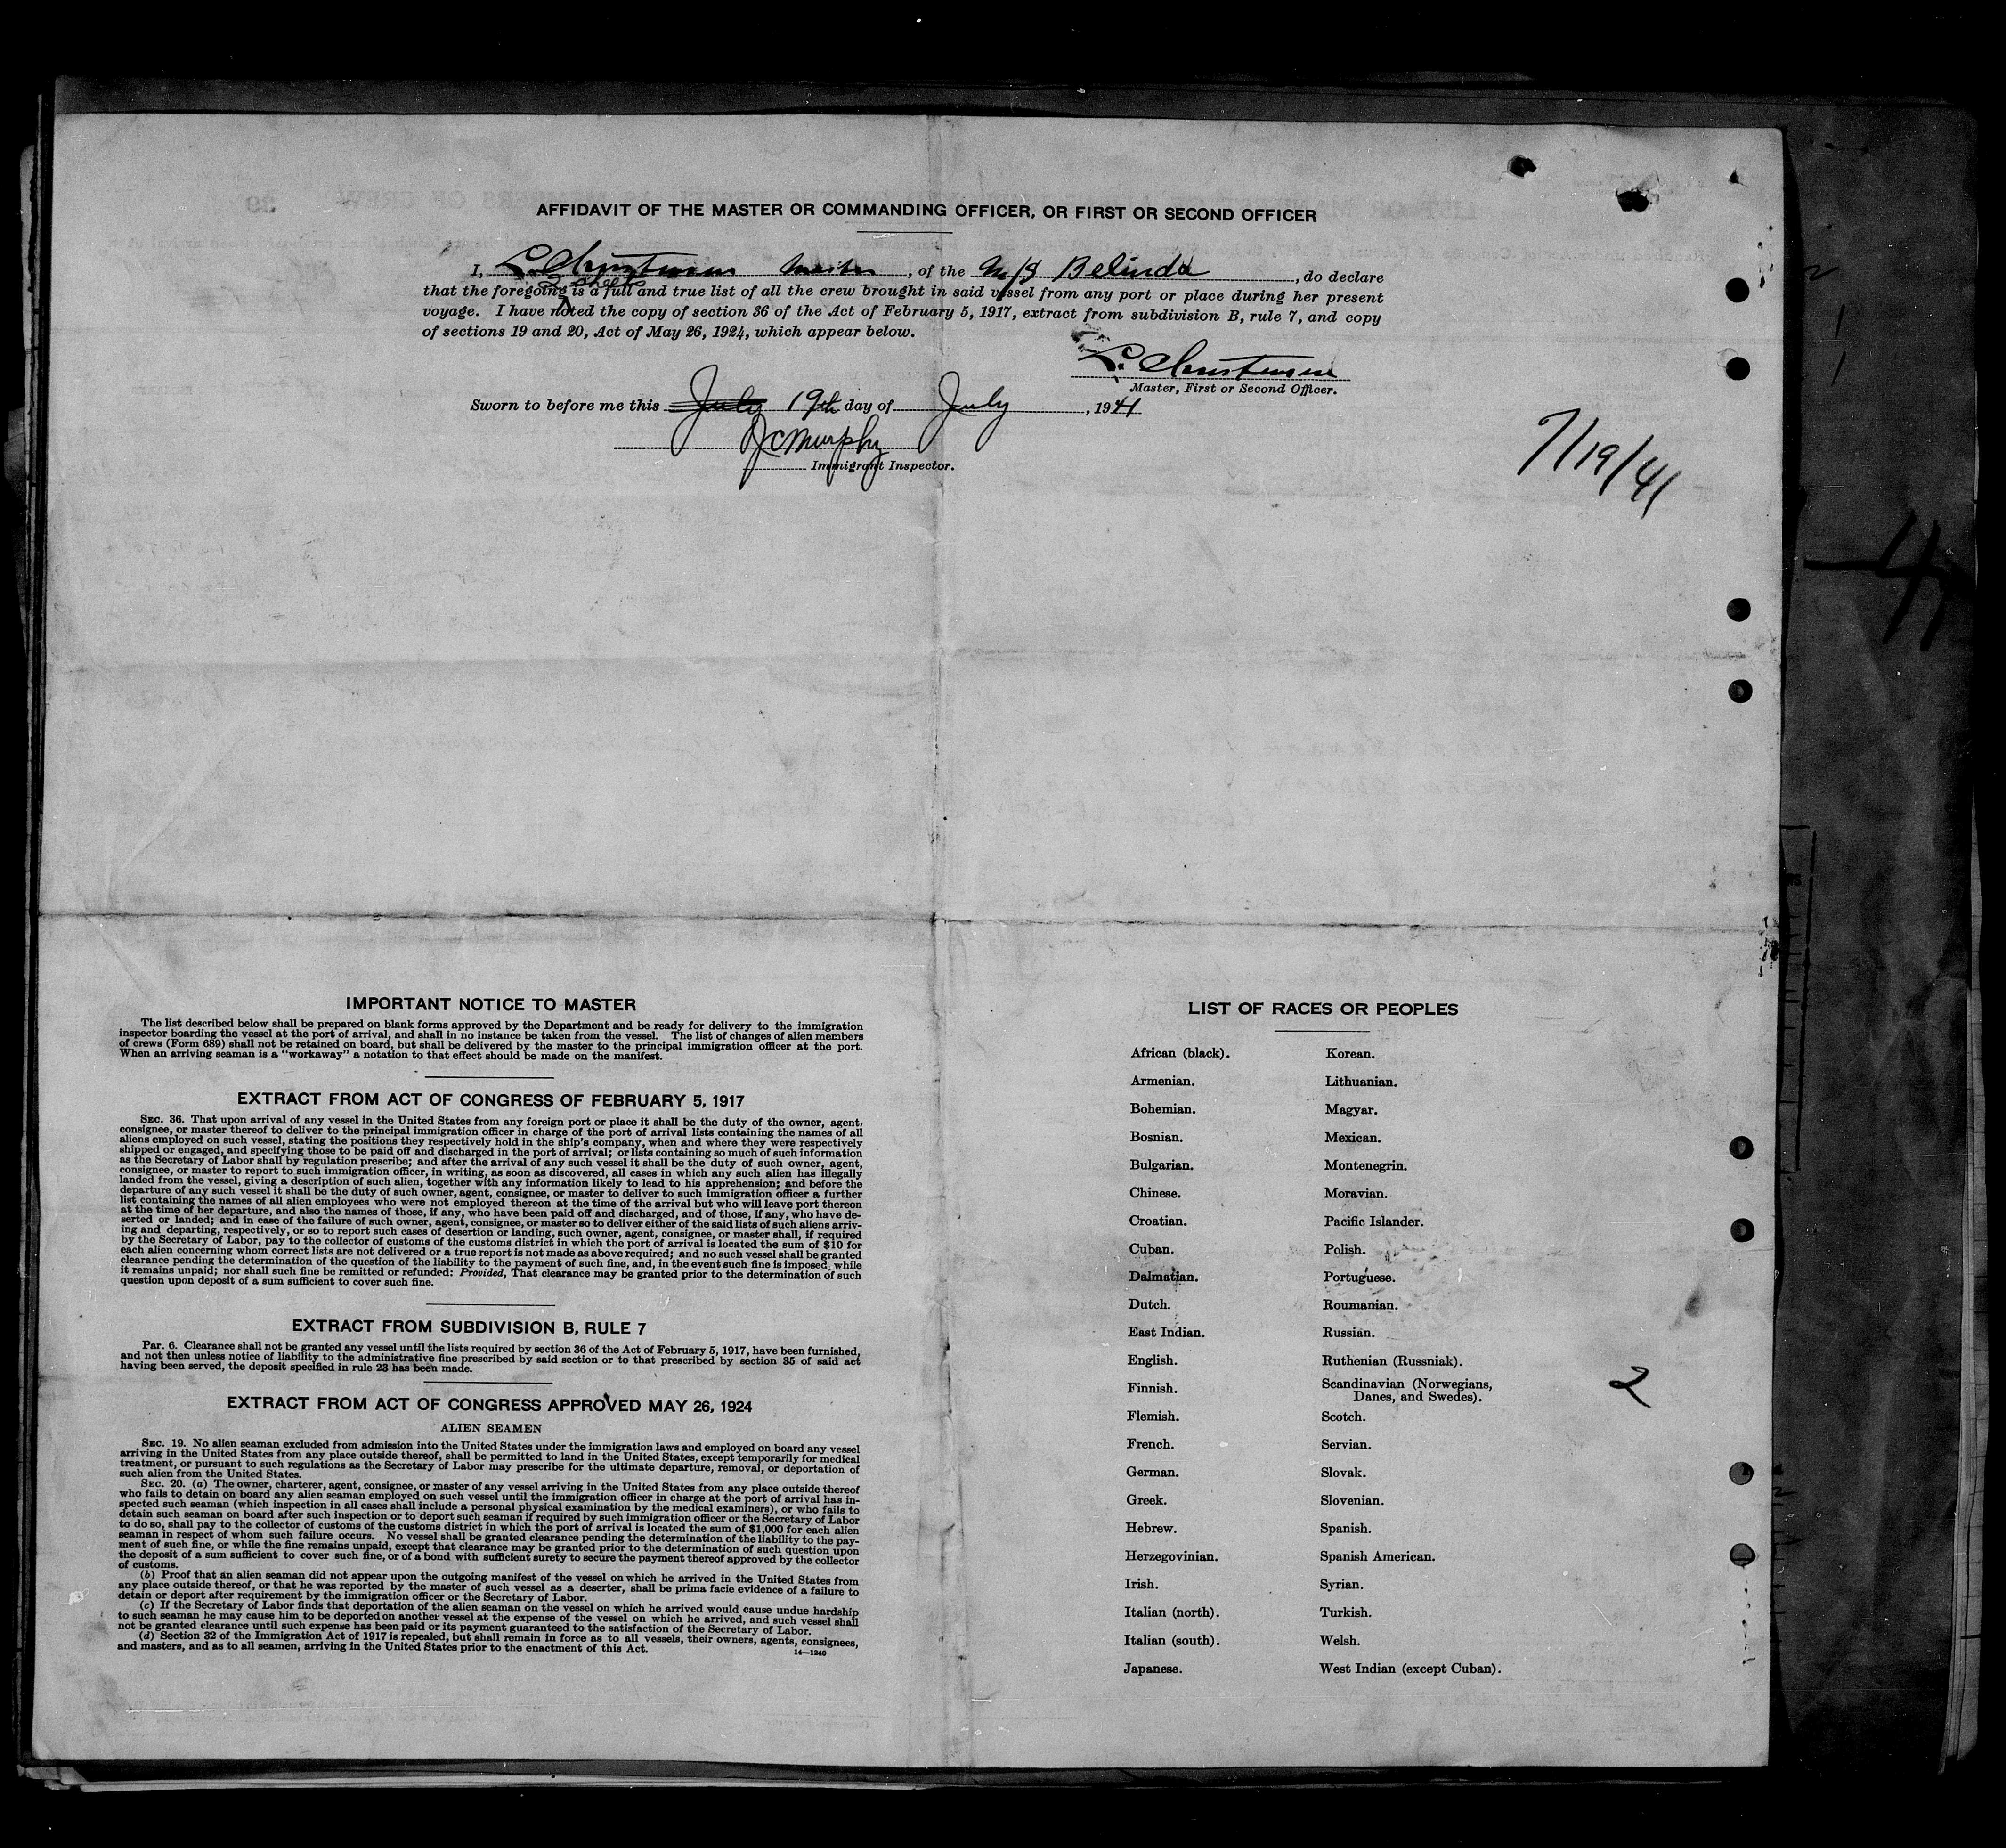 AFFIDAVIT OF THE MASTER OR COMMANDING OFFICER, OR FIRST OR SECOND OFFICER
I, L. Christensen Master, of the M/S Belinda, do declare
2 sheets
that the foregoing is a full and true list of all the crew brought in said vessel from any port or place during her present
voyage. I have noted the copy of section 36 of the Act of February 5, 1917, extract from subdivision B, rule 7, and copy
of sections 19 and 20, Act of May 26, 1924, which appear below.
L. Christensen
Master, First or Second Officer.
Sworn to before me this July 19th day of July, 1941
JC Murphy
Immigrant Inspector.
7/19/41
IMPORTANT NOTICE TO MASTER
The list described below shall be prepared on blank forms approved by the Department and be ready for delivery to the immigration
inspector boarding the vessel at the port of arrival, and shall in no instance be taken from the vessel. The list of changes of alien members
of crews (Form 689) shall not be retained on board, but shall be delivered by the master to the principal immigration officer at the port.
When an arriving seaman is a "workaway" a notation to that effect should be made on the manifest.
EXTRACT FROM ACT OF CONGRESS OF FEBRUARY 5, 1917
SEC. 36. That upon arrival of any vessel in the United States from any foreign port or place it shall be the duty of the owner, agent,
consignee, or master thereof to deliver to the principal immigration officer in charge of the port of arrival lists containing the names of all
aliens employed on such vessel, stating the positions they respectively hold in the ship's company, when and where they were respectively
shipped or engaged, and specifying those to be paid off and discharged in the port of arrival; or lists containing so much of such information
as the Secretary of Labor shall by regulation prescribe; and after the arrival of any such vessel it shall be the duty of such owner, agent,
consignee, or master to report to such immigration officer, in writing, as soon as discovered, all cases in which any such alien has illegally
landed from the vessel, giving a description of such alien, together with any information likely to lead to his apprehension; and before the
departure of any such vessel it shall be the duty of such owner, agent, consignee, or master to deliver to such immigration officer a further
list containing the names of all alien employees who were not employed thereon at the time of the arrival but who will leave port thereon
at the time of her departure, and also the names of those, if any, who have been paid off and discharged, and of those, if any, who have de-
serted or landed; and in case of the failure of such owner, agent, consignee, or master so to deliver either of the said lists of such aliens arriv-
ing and departing, respectively, or so to report such cases of desertion or landing, such owner, agent, consignee, or master shall, if required
by the Secretary of Labor, pay to the collector of customs of the customs district in which the port of arrival is located the sum of $10 for
each alien concerning whom correct lists are not delivered or a true report is not made as above required; and no such vessel shall be granted
clearance pending the determination of the question of the liability to the payment of such fine, and, in the event such fine is imposed, while
it remains unpaid; nor shall such fine be remitted or refunded: Provided, That clearance may be granted prior to the determination of such
question upon deposit of a sum sufficient to cover such fine.
EXTRACT FROM SUBDIVISION B, RULE 7
Par. 6. Clearance shall not be granted any vessel until the lists required by section 36 of the Act of February 5, 1917, have been furnished,
and not then unless notice of liability to the administrative fine prescribed by said section or to that prescribed by section 35 of said act
having been served, the deposit specified in rule 23 has been made.
EXTRACT FROM ACT OF CONGRESS APPROVED MAY 26, 1924
ALIEN SEAMEN
SEC. 19. No alien seaman excluded from admission into the United States under the immigration laws and employed on board any vessel
arriving in the United States from any place outside thereof, shall be permitted to land in the United States, except temporarily for medical
treatment, or pursuant to such regulations as the Secretary of Labor may prescribe for the ultimate departure, removal, or deportation of
such alien from the United States.
SEC. 20. (a) The owner, charterer, agent, consignee, or master of any vessel arriving in the United States from any place outside thereof
who fails to detain on board any alien seaman employed on such vessel until the immigration officer in charge at the port of arrival has in-
spected such seaman (which inspection in all cases shall include a personal physical examination by the medical examiners), or who fails to
detain such seaman on board after such inspection or to deport such seaman if required by such immigration officer or the Secretary of Labor
to do so, shall pay to the collector of customs of the customs district in which the port of arrival is located the sum of $1,000 for each alien
seaman in respect of whom such failure occurs. No vessel shall be granted clearance pending the determination of the liability to the pay-
ment of such fine, or while the fine remains unpaid, except that clearance may be granted prior to the determination of such question upon
the deposit of a sum sufficient to cover such fine, or of a bond with sufficient surety to secure the payment thereof approved by the collector
of customs.
(b) Proof that an alien seaman did not appear upon the outgoing manifest of the vessel on which he arrived in the United States from
any place outside thereof, or that he was reported by the master of such vessel as a deserter, shall be prima facie evidence of a failure to
detain or deport after requirement by the immigration officer or the Secretary of Labor.
(c) If the Secretary of Labor finds that deportation of the alien seaman on the vessel on which he arrived would cause undue hardship
to such seaman he may cause him to be deported on another vessel at the expense of the vessel on which he arrived, and such vessel shall
not be granted clearance until such expense has been paid or its payment guaranteed to the satisfaction of the Secretary of Labor.
(d) Section 32 of the Immigration Act of 1917 is repealed, but shall remain in force as to all vessels, their owners, agents, consignees,
and masters, and as to all seamen, arriving in the United States prior to the enactment of this Act.
14—1240
LIST OF RACES OR PEOPLES
African (black). Korean.
Armenian. Lithuanian.
Bohemian. Magyar.
Bosnian. Mexican.
Bulgarian. Montenegrin.
Chinese. Moravian.
Croatian. Pacific Islander.
Cuban. Polish.
Dalmatian. Portuguese.
Dutch. Roumanian.
East Indian. Russian.
English. Ruthenian (Russniak).
Finnish. Scandinavian (Norwegians,
Danes, and Swedes). 2
Flemish. Scotch.
French. Servian.
German. Slovak.
Greek. Slovenian.
Hebrew. Spanish.
Herzegovinian. Spanish American.
Irish. Syrian.
Italian (north). Turkish.
Italian (south). Welsh.
Japanese. West Indian (except Cuban).